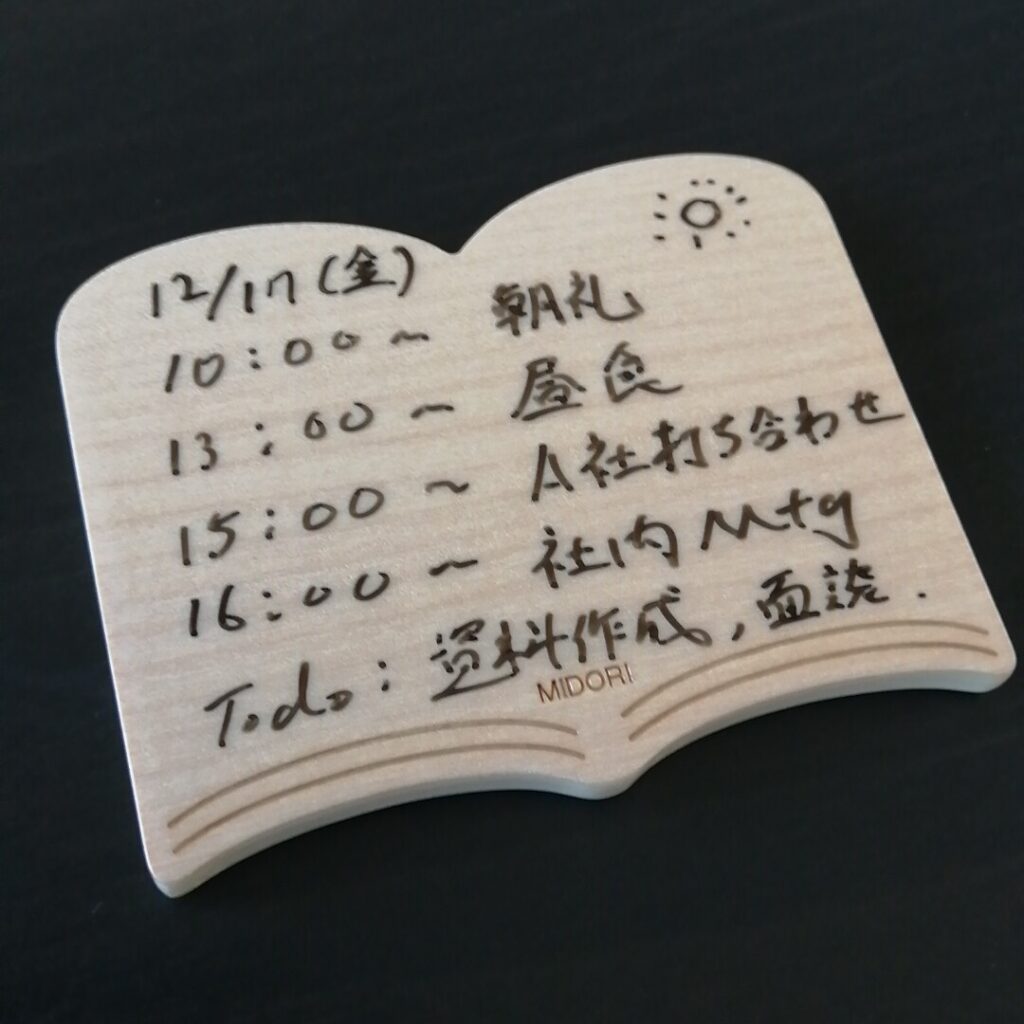 12/17(金)
10:00〜 朝礼
13:00〜 昼食
15:00〜 A社打ち合わせ
16:00〜 社内Mtg
Todo: 資料作成, 面談.
MIDORI